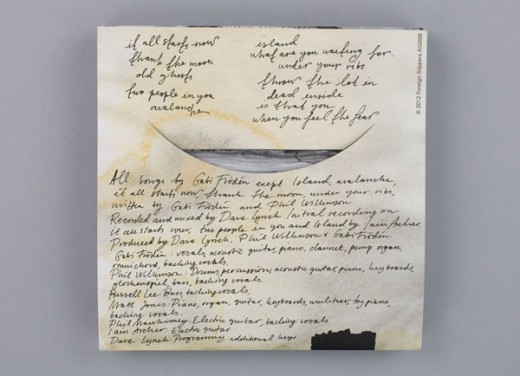 it all starts now
thank the moon
old ghosts
two people in you
avalanche
island
what are you waiting for
under your ribs
throw the lot in
dead inside
is that you
when you feel the fear
© 2012 Foreign Slippers
All songs by Gabi Frödén exept Island, avalanche,
it all starts now, thank the moon, under your ribs,
written by Gabi Frödén and Phil Wilkinson
Recorded and mixed by Dave Lynch Initial recording on
it all starts now, two people in you and Island by Iain Archer
Produced by Dave Lynch, Phil Wilkinson & Gabi Frödén
Gabi Frödén: vocals, acoustic guitar, piano, clarinet, pump organ,
omnichord, backing vocals
Phil Wilkinson: Drums, percussion, acoustic guitar, piano, keyboards
glockenspiel, bass, backing vocals.
Russell Lee Bass, backing vocals.
Matt Jones: Piano, organ, guitar, keyboards, wurlitzer, toy piano,
backing vocals.
Phil Electric guitar, backing vocals.
Iain Archer: Electric guitar
Dave Lynch Programming additional keys